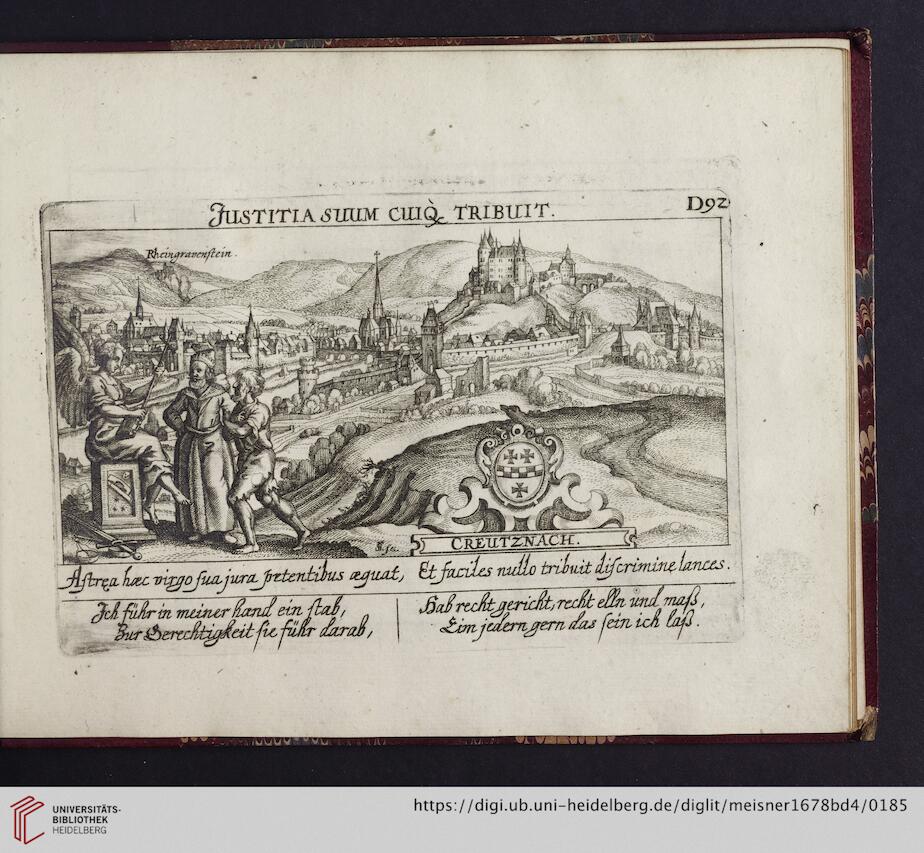 JUSTITIA SUUM CUIQ; TRIBUIT.
D92
Rheingravenstein.
S. fec.
CREUTZNACH.
Astręa hæc virgo sua jura petentibus æquat, Et faciles nullo tribuit discrimine lances.
Ich führ in meiner hand ein stab,
Zur Gerechtigkeit sie führ darab,
Hab recht gericht, recht elln und maß,
Eim jedern gern das sein ich laß.
UNIVERSITÄTS-
BIBLIOTHEK
HEIDELBERG
https://digi.ub.uni-heidelberg.de/diglit/meisner1678bd4/0185